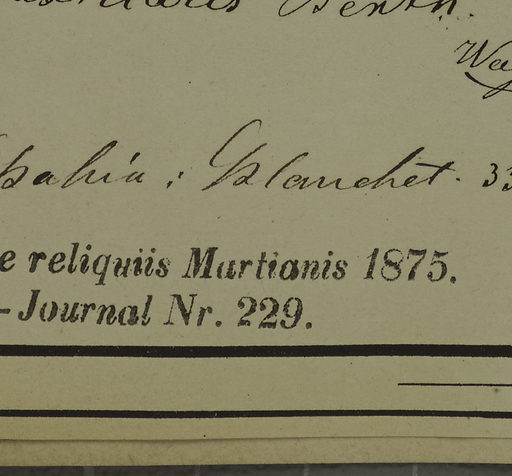 Benth.
Bahia: Blanchet. 33
e reliquiis Martianis 1875.
-Journal Nr. 229.